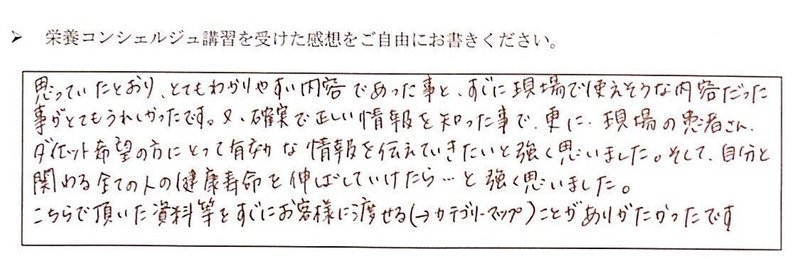 ➤ 栄養コンシェルジュ講習を受けた感想をご自由にお書きください。
思っていたとおり、とてもわかりやすい内容であった事と、すぐに現場で使えそうな内容だった
事がとてもうれしかったです。又、確実で正しい情報を知った事で、更に、現場の患者さん、
ダイエット希望の方にとって有効な情報を伝えていきたいと強く思いました。そして、自分と
関わる全ての人の健康寿命を伸ばしていけたら…と強く思いました。
こちらで頂いた資料等をすぐにお客様に渡せる(→カテゴリーマップ)ことがありがたかったです